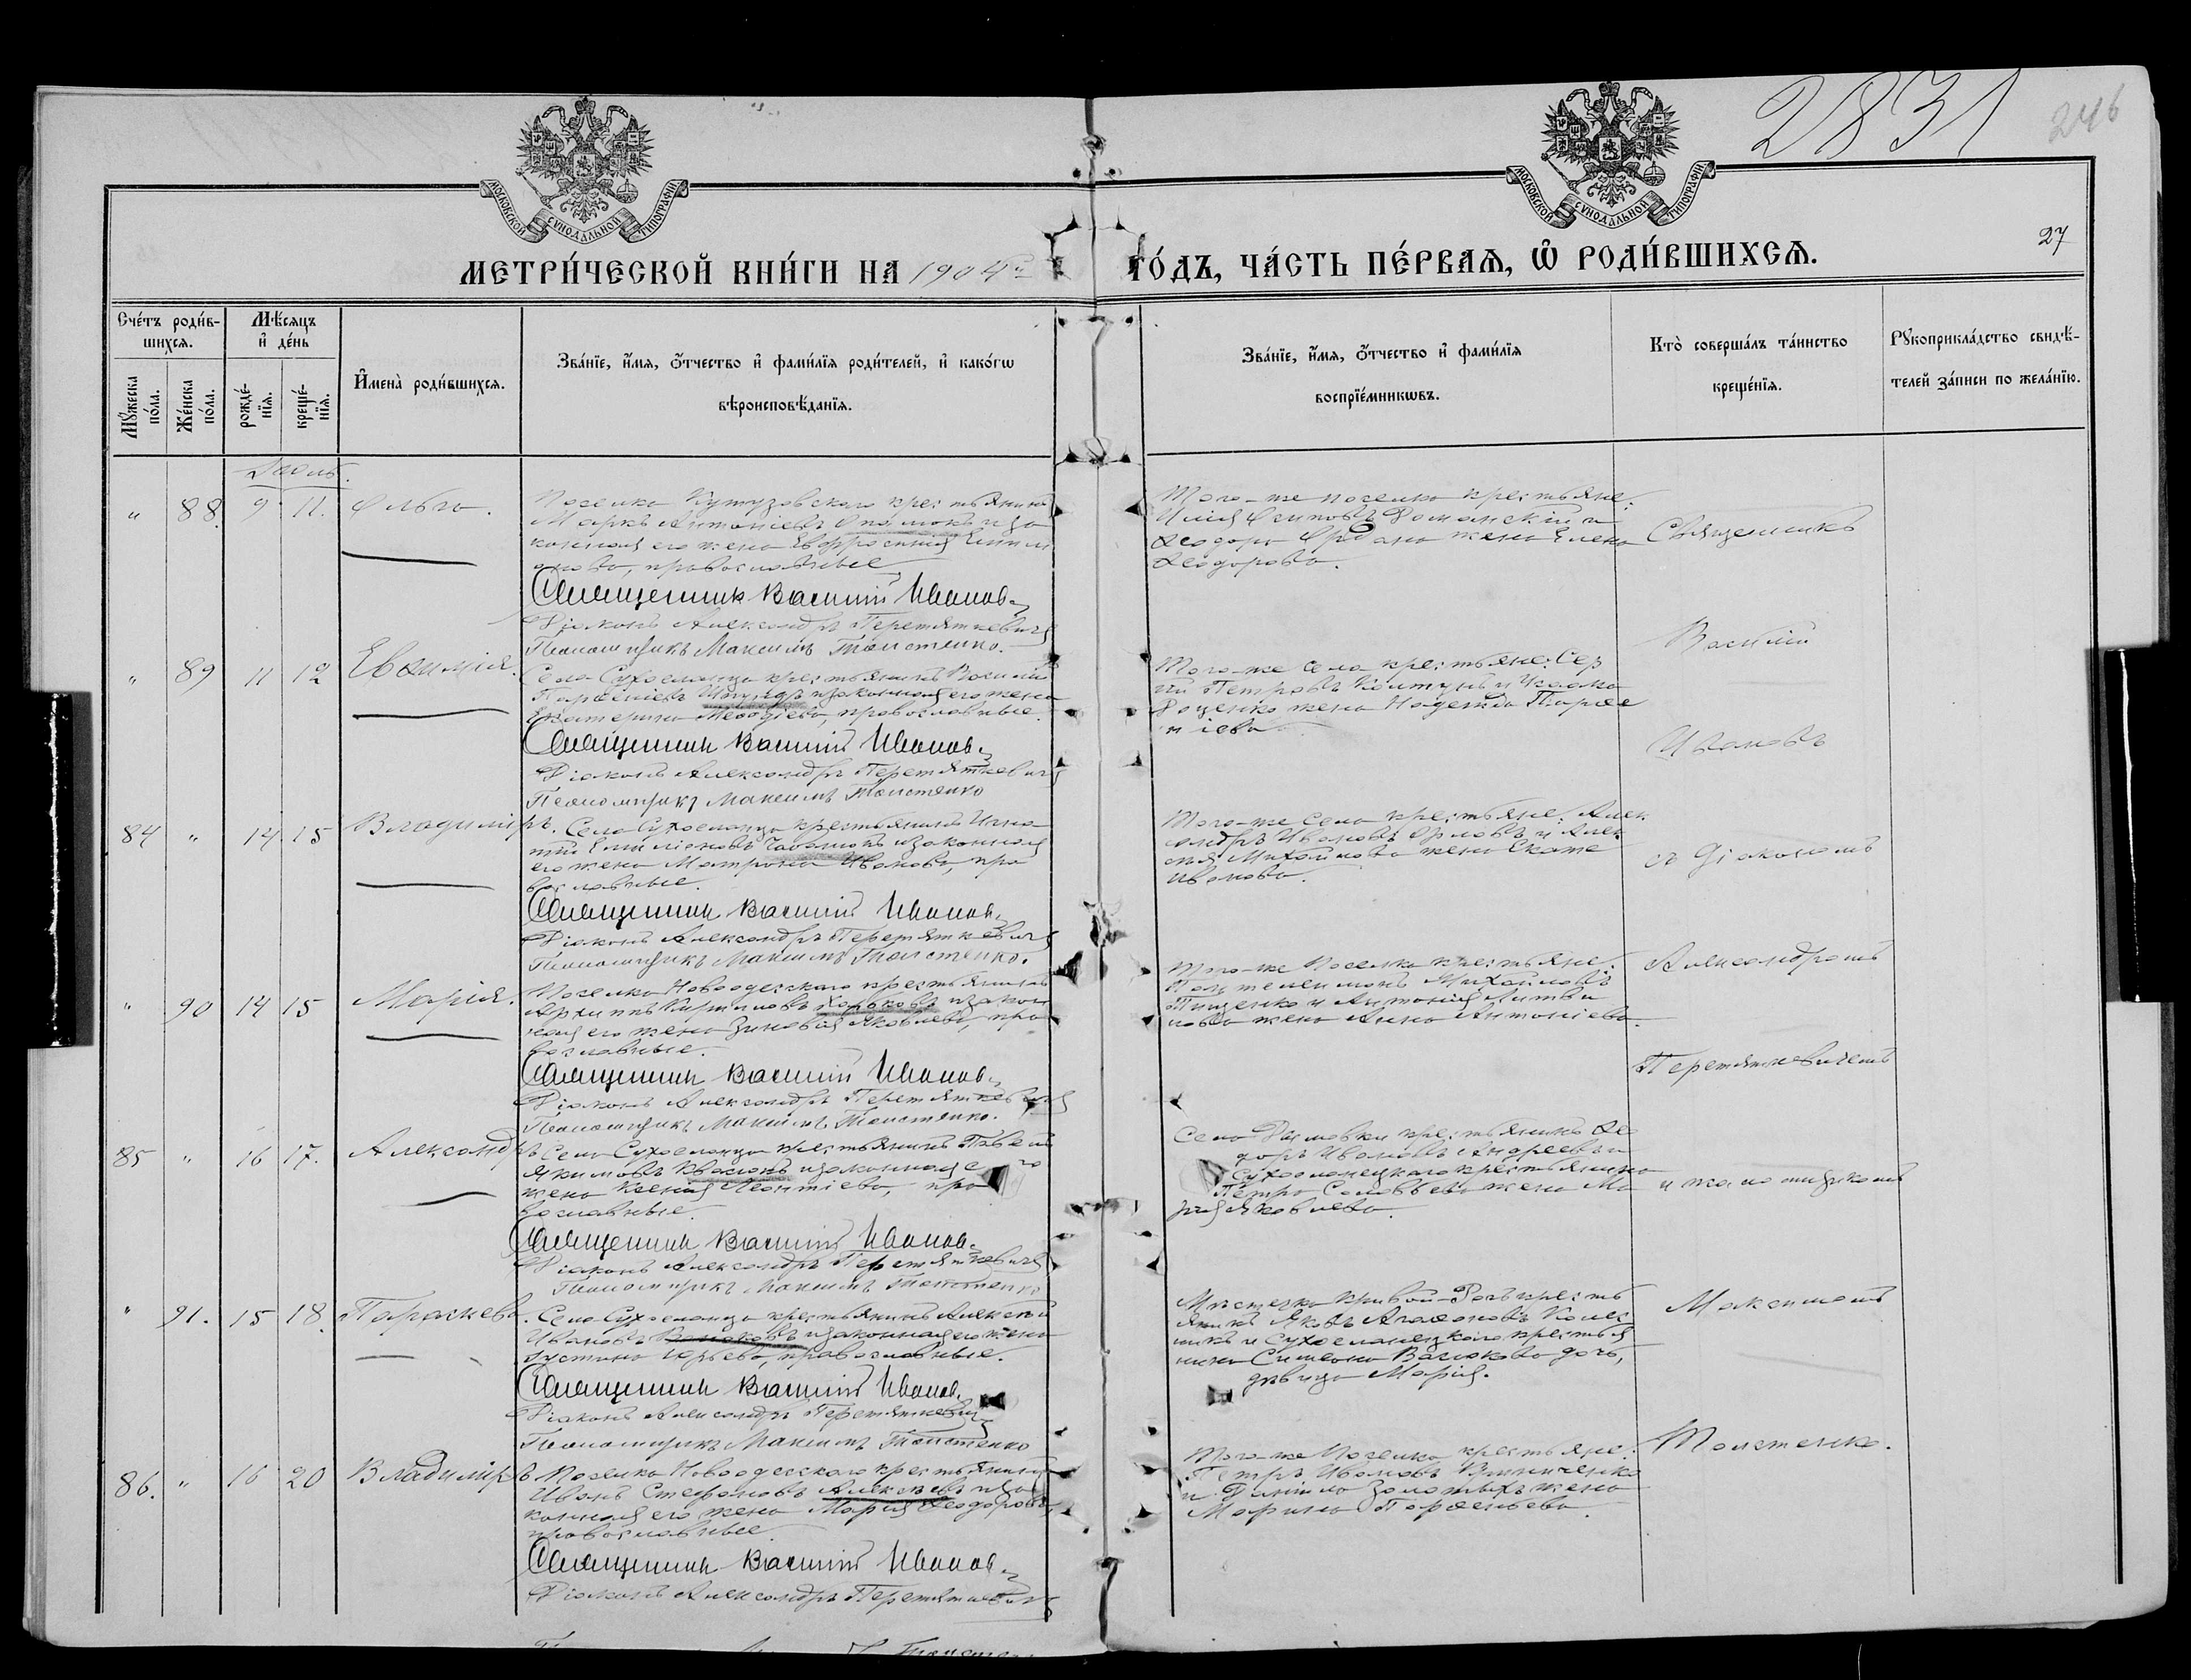 2831
246
27
МОСКОВСКОЙ СѴНОДАЛЬНОЙ ТИПОГРАФІИ
МОСКОВСКОЙ СѴНОДАЛЬНОЙ ТИПОГРАФІИ
МЕТРИ́ЧЕСКОЙ КНИ́ГИ НА 1904й ГО́ДЪ, ЧА́СТЬ ПЕ́РВАѦ, Ѡ҆ РОДИ́ВШИХСѦ.
Сче́тъ роди́в-
шихсѧ.
Мꙋ́жеска
по́ла.
Же́нска
по́ла.
Мѣ́сѧцъ
и҆ де́нь
рожде́-
нїѧ.
креще́-
нїѧ.
И҆мена̀ роди́вшихсѧ.
Зва́нїе, и҆́мѧ, ѻ҆́тчество и҆ фами́лїѧ роди́телей, и҆ како́гѡ
вѣроисповѣ́данїѧ.
Зва́нїе, и҆́мѧ, ѻ҆́тчество и҆ фами́лїѧ
воспрїе́мникѡвъ.
Кто̀ соверша́лъ та́инство
креще́нїѧ.
Рꙋкоприкла́дство свидѣ́-
телей за́писи по жела́нїю.
Іюль.
" 88. 9 11. Ольга.
Поселка Кутузовскаго крестьянинъ
Маркъ Антоніевъ и за
конная его жена Евфросинія Емили
анова, православные
Священник Василий Иванов
Діаконъ Александръ Перетяткевичъ
Псаломщикъ Максимъ Толстенко.
Того-же поселка крестьяне:
Илія Осиповъ Романскій и
Ѳеодора жена Елена
Ѳеодорова.
" 89 11 12 Евѳимія.
Села Сухоеланца крестьянинъ Василій
Парѳеніевъ и законная его жена
Екатерина Меѳодіева, православные.
Священник Василий Иванов
Діаконъ Александръ Перетяткевичъ
Псаломщикъ Максимъ Толстенко
Того-же села крестьяне: Сер
гій Петровъ Колтунъ и Исаака
Доценко жена Надежда Парѳе
ніева
84 " 14 15 Владиміръ.
Села Сухоеланца крестьянинъ Игна
тій Емиліановъ и законная
его жена Матрона Иванова, пра
вославные.
Священник Василий Иванов
Діаконъ Александръ Перетяткевичъ
Псаломщикъ Максимъ Толстенко.
Того-же села крестьяне: Алек
сандръ Ивановъ Орловъ и Алек
сѣя Михайлова жена
Иванова.
" 90 14 15 Марія.
Поселка Новоодесскаго крестьянинъ
Архиппъ Кирилловъ Харьковъ и закон
ная его жена Зиновія Яковлева, пра
вославные.
Священник Василий Иванов
Діаконъ Александръ Перетяткевичъ
Псаломщикъ Максимъ Толстенко.
Того-же поселка крестьяне:
Пантелеимонъ Михайловъ
Тищенко и Антонія Литви
нова жена Анна Антоніева.
85 " 16 17. Александръ
Села Сухоеланца крестьянинъ Павелъ
Якимовъ Квасюкъ и законная его
жена Ксенія Леонтіева, пра
вославные.
Священник Василий Иванов
Діаконъ Александръ Перетяткевичъ
Псаломщикъ Максимъ Толстенко
Села крестьянинъ Ѳе
доръ Ивановъ Андреевъ и
Сухоеланецкаго крестьянина
Петра Соловьева жена Ма
рія Яковлева.
" 91. 15 18. Параскева.
Села Сухоеланца крестьянинъ Алексѣй
Ивановъ и законная его жена
Іустина Юрьева, православные.
Священник Василий Иванов
Діаконъ Александръ Перетяткевичъ
Псаломщикъ Максимъ Толстенко
Мѣстечка Кривой-Рогъ кресть
янинъ Яковъ Агаѳоновъ Колес
никъ и Сухоеланецкаго крестья
нина Симеона дочь,
дѣвица Марія.
86. " 16 20 Владиміръ
Поселка Новоодесскаго крестьянинъ
Иванъ Стефановъ Алексѣевъ и за
конная его жена Марія Ѳеодорова,
православные.
Священник Василий Иванов
Діаконъ Александръ Перетяткевичъ
Того-же поселка крестьяне:
Петръ Ивановъ Винниченко
и Даніила Золотыхъ жена
Марина Парѳеньева.
Священникъ
Василій
Ивановъ
съ Діакономъ
Александромъ
Перетяткевичемъ
и псаломщикомъ
Максимомъ
Толстенко.